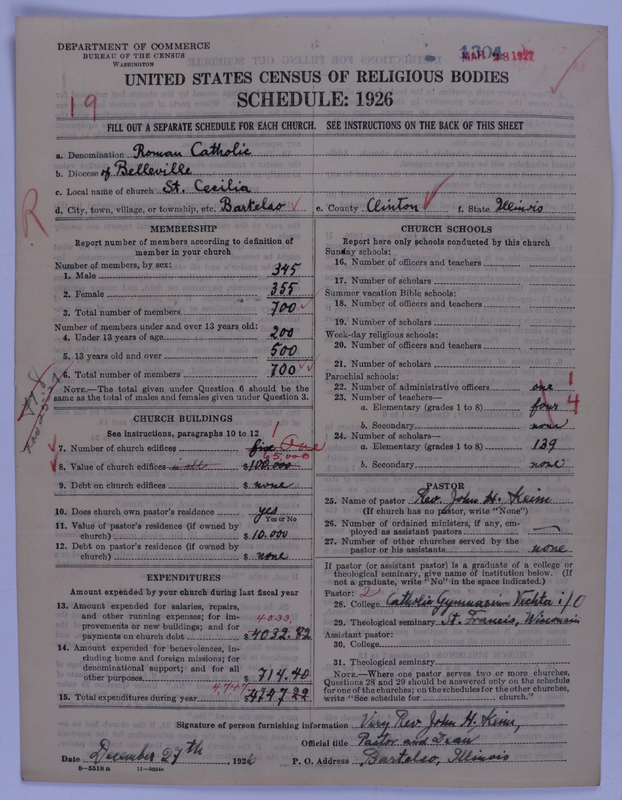 DEPARTMENT OF COMMERCE
BUREAU OF THE CENSUS
WASHINGTON
MAR 28 1927
UNITED STATES CENSUS OF RELIGIOUS BODIES
SCHEDULE: 1926
19
FILL OUT A SEPARATE SCHEDULE FOR EACH CHURCH. SEE INSTRUCTIONS ON THE BACK OF THIS SHEET
a. Denomination Roman Catholic
b. Diocese of Belleville
c. Local name of church St. Cecilia
d. City, town, village, or township, etc. Bartelso e. County Clinton f. State Illinois
R
MEMBERSHIP
Report number of members according to definition of
member in your church
Number of members, by sex:
1. Male 345
2. Female 355
3. Total number of members 700
Number of members under and over 13 years old:
4. Under 13 years of age 200
5. 13 years old and over 500
6. Total number of members 700
NOTE.—The total given under Question 6 should be
same as the total of males and females given under Question 3.
CHURCH BUILDINGS
See instructions, paragraphs 10 to 12
1
7. Number of church edifices five
65,000
8. Value of church edifices in all $100.000
9. Debt on church edifices $ none
10. Does church own pastor's residence yes
Yes or No
11. Value of pastor's residence (if owned by
church) $ 10.000
12. Debt on pastor's residence (if owned by
church) $ none
EXPENDITURES
Amount expended by your church during last fiscal year
13. Amount expended for salaries, repairs,
and other running expenses; for im-
provements or new buildings; and for
payments on church debt $4032.82
4033
14. Amount expended for benevolences, in-
cluding home and foreign missions; for
denominational support; and for all
other purposes $ 714.40
4747
15. Total expenditures during year $4747.22
CHURCH SCHOOLS
Report here only schools conducted by this church
Sunday schools:
16. Number of officers and teachers
17. Number of scholars
Summer vacation Bible schools:
18. Number of officers and teachers
19. Number of scholars
Week-day religious schools:
20. Number of officers and teachers
21. Number of scholars
Parochial schools:
22. Number of administrative officers one 1
23. Number of teachers—
a. Elementary (grades 1 to 8) four 4
b. Secondary none
24. Number of scholars—
a. Elementary (grades 1 to 8) 139
b. Secondary none
PASTOR
25. Name of pastor Rev. John H. Keim
(If church has no pastor, write "None")
26. Number of ordained ministers, if any, em-
ployed as assistant pastors —
27. Number of other churches served by the
pastor or his assistants none
If pastor (or assistant pastor) is a graduate of a college or
theological seminary, give name of institution below. (If
not a graduate, write "No" in the space indicated.)
Pastor: 2
28. College Catholic Gymnasium Vechta i/O
29. Theological seminary St. Francis, Wisconsin
Assistant pastor:
30. College
31. Theological seminary
NOTE.—Where one pastor serves two or more churches,
Questions 28 and 29 should be answered only on the schedule
for one of the churches; on the schedules for the other churches,
write "See schedule for church."
Signature of person furnishing information Very Rev. John H. Keim,
Official title Pastor and Dean
Date December 27th, 1926 P. O. Address Bartelso, Illinois
8—5518 a